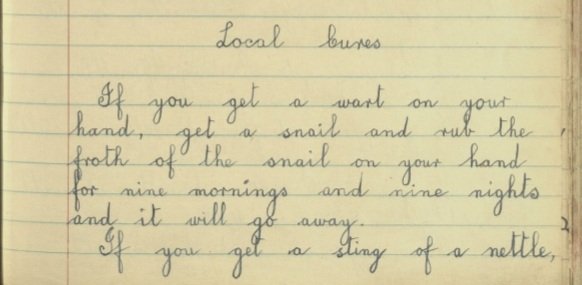 Local Cures
If you get a wart on your
hand, get a snail and rub the
froth of the snail on your hand
for nine mornings and nine nights
and it will go away.
If you get a sting of a nettle,